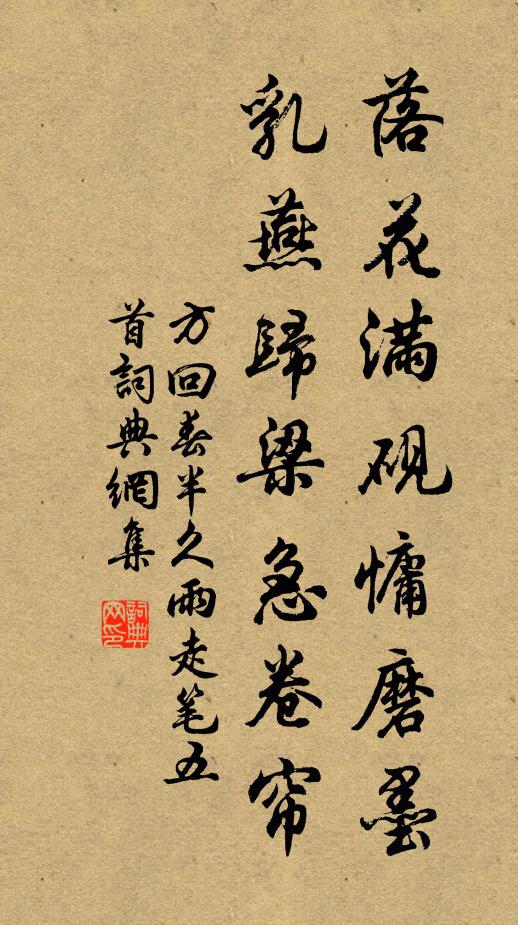 落花满砚慵磨墨
乳燕歸梁急卷帘
方回春半久雨走笔五
首詞典網集
詞典
网印